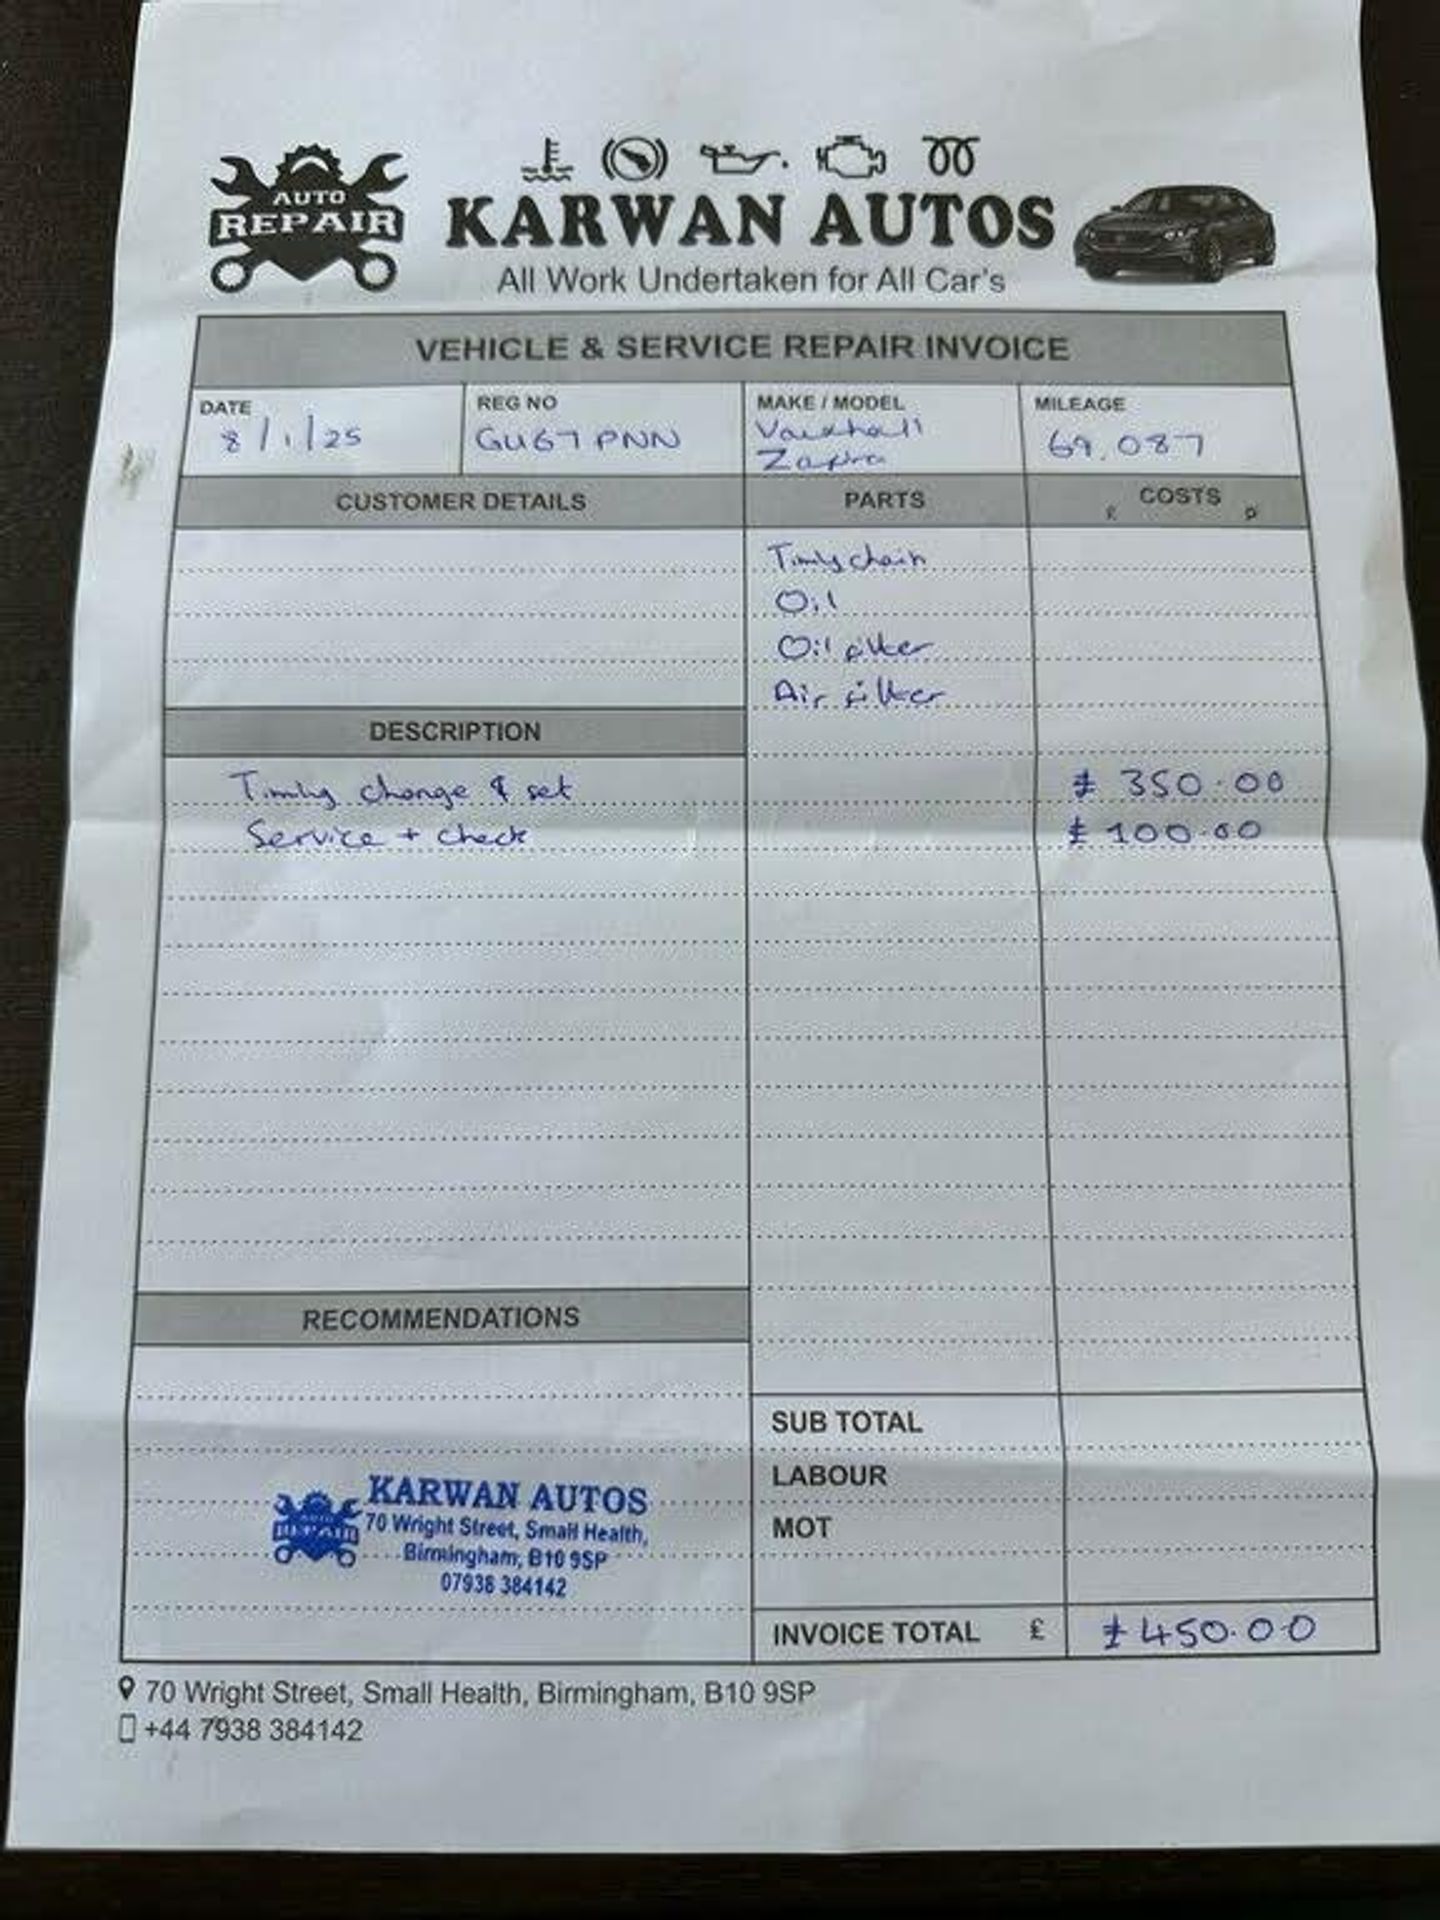 AUTO
REPAIR
KARWAN AUTOS
All Work Undertaken for All Car's
VEHICLE & SERVICE REPAIR INVOICE
DATE REG NO MAKE / MODEL MILEAGE
8/1/25 GU67 PNN Vauxhall 69,087
Zafira
CUSTOMER DETAILS PARTS COSTS
£ p
Timing chain
Oil
Oil filter
Air filter
DESCRIPTION
Timing change & set £ 350.00
Service + check £ 100.00
RECOMMENDATIONS
SUB TOTAL
LABOUR
MOT
INVOICE TOTAL £ £450.00
AUTO
REPAIR
KARWAN AUTOS
70 Wright Street, Small Health,
Birmingham, B10 9SP
07938 384142
70 Wright Street, Small Health, Birmingham, B10 9SP
+44 7938 384142